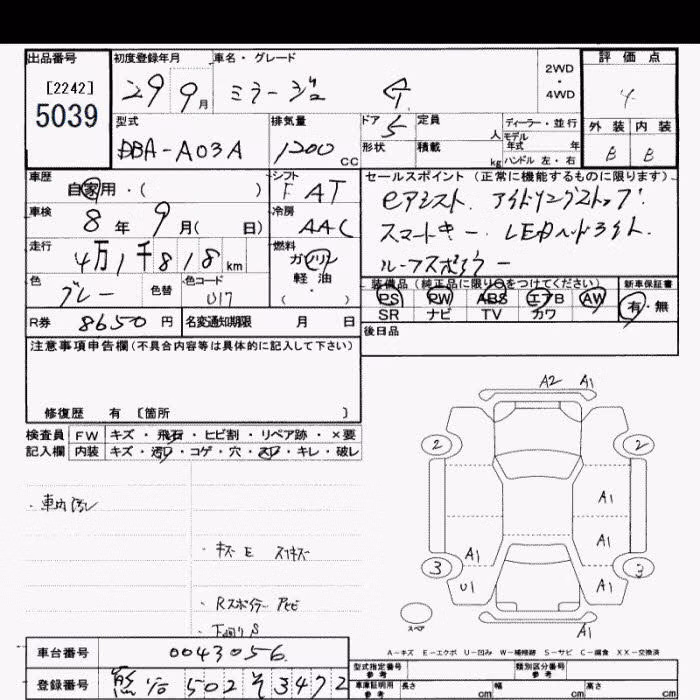 出品番号
[2242]
5039
初度登録年月
29 9月
車名・グレード
ミラージュ G
2WD
・
4WD
評価点
4
外装 内装
B B
型式
DBA-A03A
排気量
1200 CC
ドア 5
形状
定員 人
積載 kg
ディーラー・並行
モデル
年式 年
ハンドル 左・右
車歴
自家用・( )
シフト
F AT
車検
8年 9月( 日)
冷房
AAC
走行
4万1千818km
燃料
ガソリン
軽・油
・
( )
色
グレー
色替
色コード
U17
R券 8650円
名変通知期限 月 日
セールスポイント(正常に機能するものに限ります)
eアシスト. アイドリングストップ.
スマートキー. LEDヘッドライト.
ルーフスポイラー
装備品(純正品に限り○をつけてください)
PS PW ABS エアB AW
SR ナビ TV カワ
新車保証書
有・無
後日品
注意事項申告欄(不具合内容等は具体的に記入して下さい)
修復歴 有 〔箇所 〕
検査員 FW キズ・飛石・ヒビ割・リペア跡・×要
記入欄 内装 キズ・汚れ・コゲ・穴・スレ・キレ・破レ
・車内汚レ
・キズE スリキズ
・Rスポイラー
・下廻りS
A2 A1
2 2
A1
A1 A1
3 3
U1 A1
スペア
A1
A-キズ E-エクボ U-凹み W-補修跡 S-サビ C-腐食 XX-交換済
車台番号 0043056
登録番号 502 そ 3472
型式指定番号
参考
類別区分番号
参考
車庫証明用
参考
長さ cm 幅 cm 高さ cm